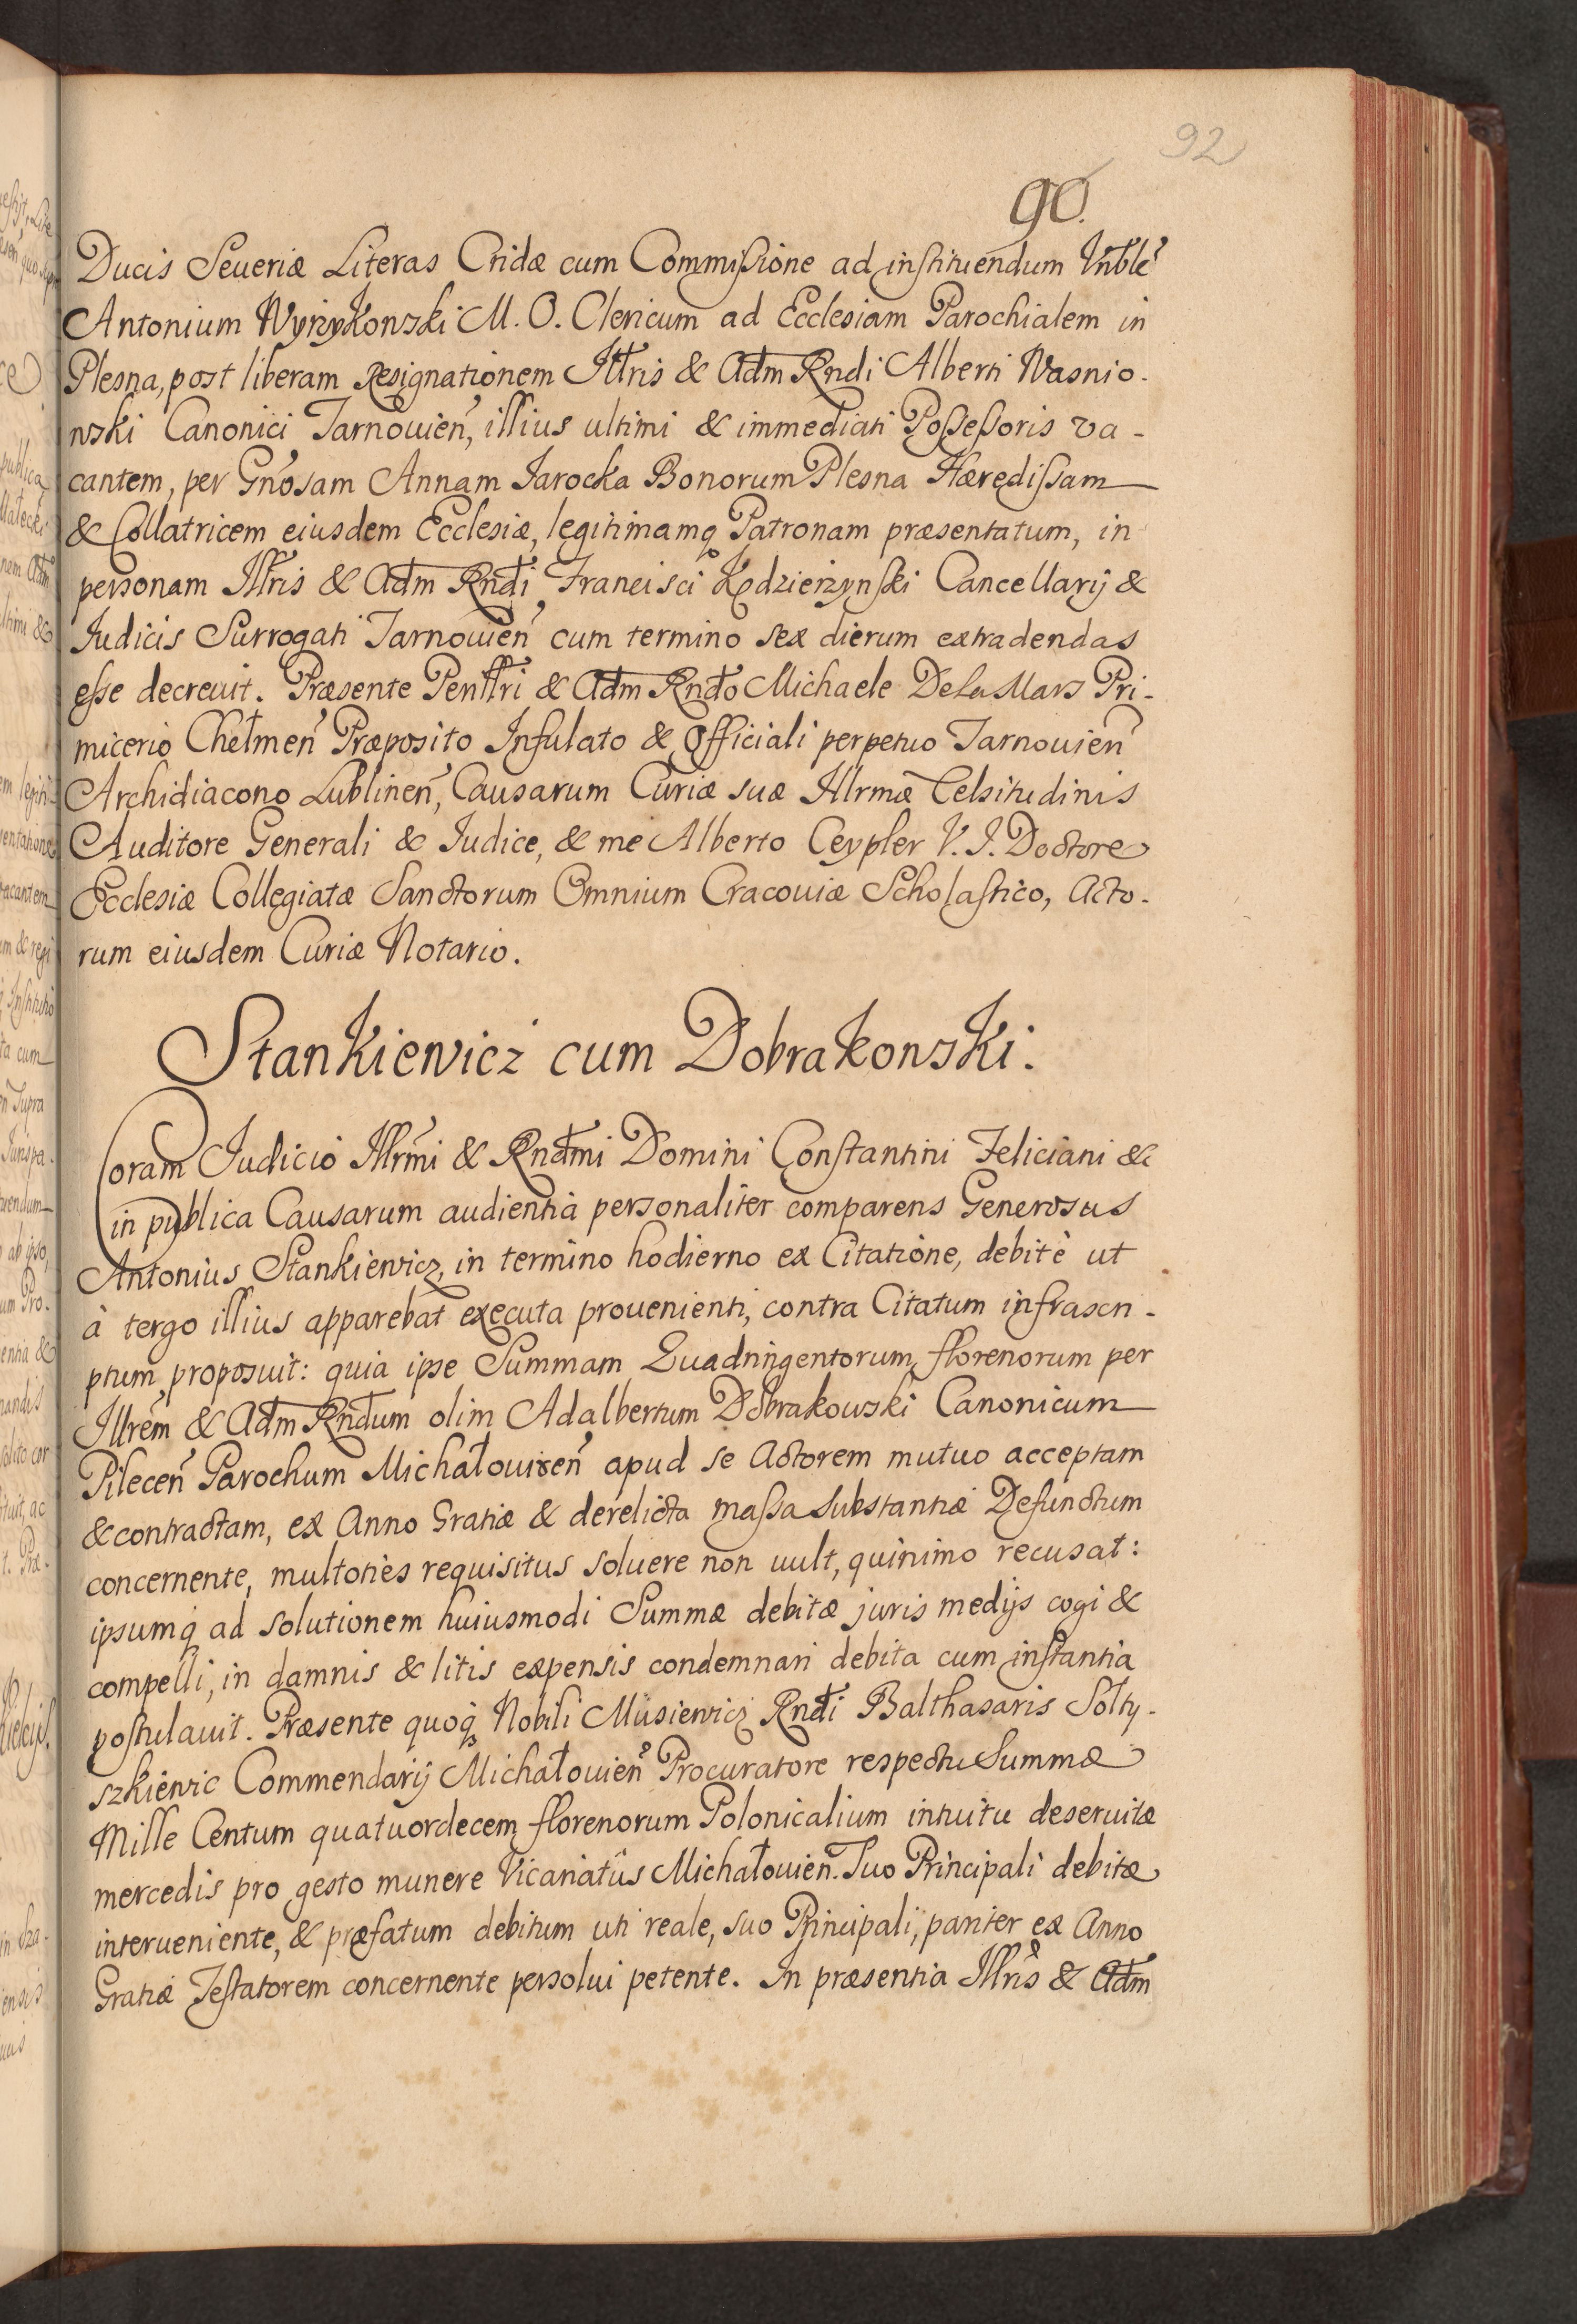 92
90.
Ducis Seueriæ Literas Cridæ cum Commissione ad instituendum Vnble
Antonium Wyrzykowski M. O. Clericum ad Ecclesiam Parochialem in
Plesna, post liberam Resignationem Illtris & Adm Rndi Alberti Wasnio-
wski Canonici Tarnouien, illius ultimi & immediati Possessoris va-
cantem, per Gnosam Annam Jarocka Bonorum Plesna Hæredissam
& Collatricem eiusdem Ecclesiæ, legitimamq Patronam præsentatum, in
personam Illtris & Adm Rndi Francisci Kędzierzynski Cancellarij &
Judicis Surrogati Tarnouien cum termino sex dierum extradendas
esse decreuit. Præsente Penlltri & Adm Rndo Michaele De La Mars Pri-
micerio Chełmen Præposito Infulato & Officiali perpetuo Tarnouien
Archidiacono Lublinen, Causarum Curiæ suæ Illrmæ Celsitudinis
Auditore Generali & Judice, & me Alberto Ceypler V. J. Doctore
Ecclesiæ Collegiatæ Sanctorum Omnium Cracouiæ Scholastico, Acto-
rum eiusdem Curiæ Notario.
Stankiewicz cum Dobrakowski.
Coram Judicio Illrmi & Rndmi Domini Constantini Feliciani &
in publica Causarum audientia personaliter comparens Generosus
Antonius Stankiewicz, in termino hodierno ex Citatione, debitè ut
à tergo illius apparebat executa prouenienti, contra Citatum infrascri-
ptum proposuit: quia ipse Summam Quadringentorum florenorum per
Illrem & Adm Rndum olim Adalbertum Dobrakowski Canonicum
Pilecen Parochum Michałouien apud se Actorem mutuo acceptam
& contractam, ex Anno Gratiæ & derelicta massa substantiæ Defunctum
concernente, multoties requisitus soluere non uult, quinimo recusat:
ipsumq ad solutionem huiusmodi Summæ debitæ juris medijs cogi &
compelli, in damnis & litis expensis condemnari debita cum instantia
postulauit. Præsente quoq Nobili Musiewicz Rndi Balthasaris Sołty-
szkiewic Commendarij Michałouien Procuratore respectu Summæ
Mille Centum quatuordecem florenorum Polonicalium intuitu deseruitæ
mercedis pro gesto munere Vicariatûs Michałouien. Suo Principali debitæ
interueniente, & præfatum debitum uti reale, suo Principali, pariter ex Anno
Gratiæ Testatorem concernente persolui petente. In præsentia Illris & Adm